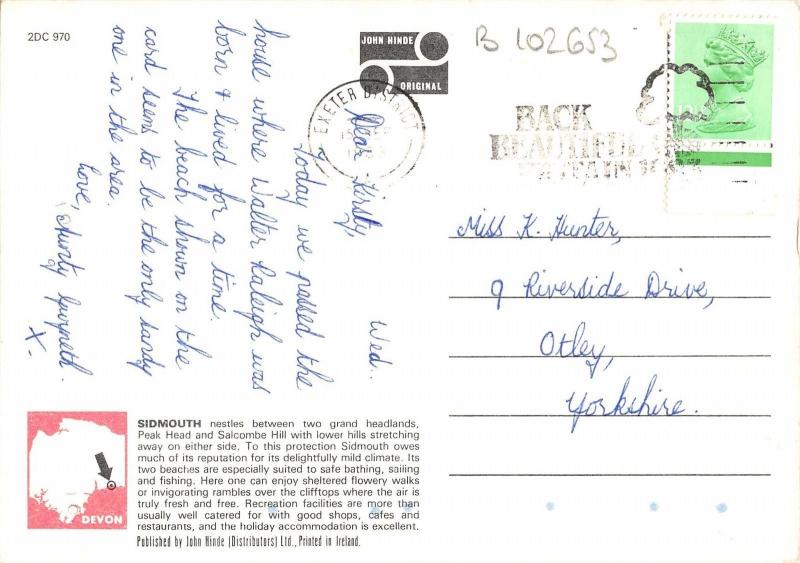 2DC 970
JOHN HINDE
ORIGINAL
B 102653
EXETER DISTRICT
BACK
BEAUTIFUL
BRITAIN
Wed.
Dear Kirsty,
Today we passed the
house where Walter Raleigh was
born & lived for a time.
The beach shown on the
card seems to be the only sandy
one in the area.
Love, Aunty Gwyneth.
X-
Miss K. Hunter,
9 Riverside Drive,
Otley,
Yorkshire.
DEVON
SIDMOUTH nestles between two grand headlands,
Peak Head and Salcombe Hill with lower hills stretching
away on either side. To this protection Sidmouth owes
much of its reputation for its delightfully mild climate. Its
two beaches are especially suited to safe bathing, sailing
and fishing. Here one can enjoy sheltered flowery walks
or invigorating rambles over the clifftops where the air is
truly fresh and free. Recreation facilities are more than
usually well catered for with good shops, cafes and
restaurants, and the holiday accommodation is excellent.
Published by John Hinde (Distributors) Ltd., Printed in Ireland.